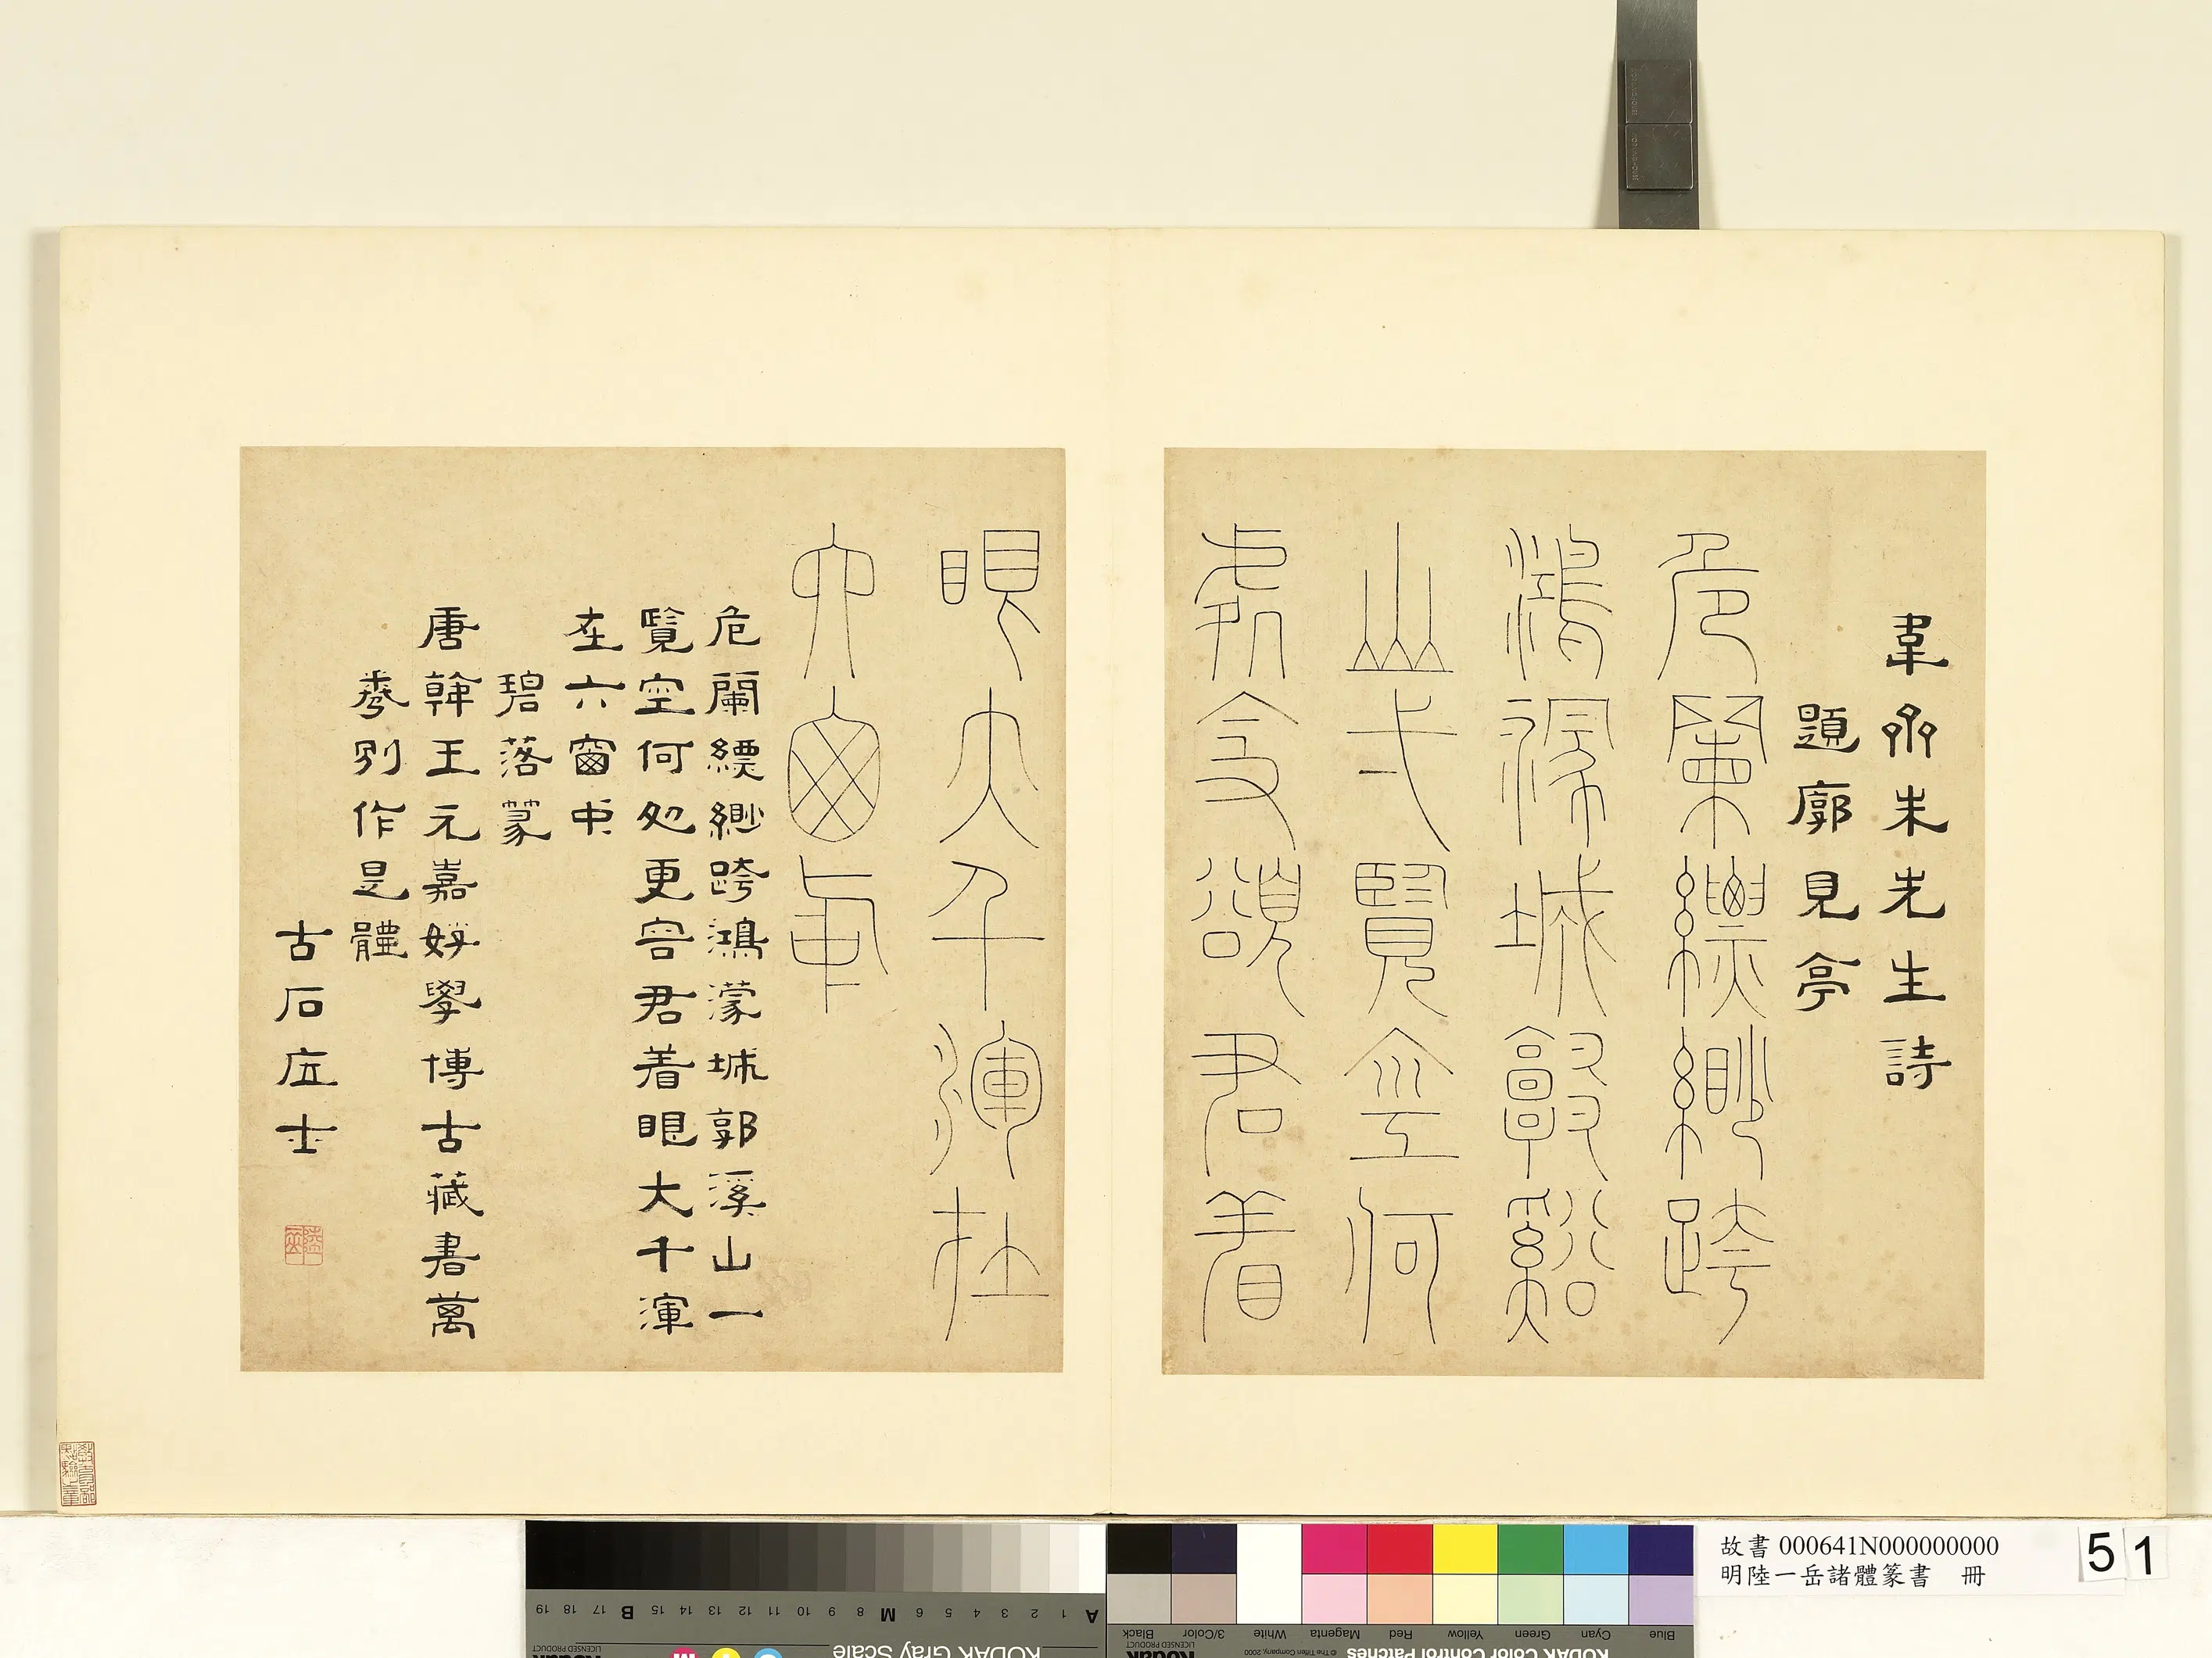 韋齋朱先生詩
題廓見亭
危闌縹緲跨
鴻濛城郭谿
山一覽空何
處更容君着
眼大千渾在
六窗中
危闌縹緲跨鴻濛城郭溪山一
覽空何処更容君着眼大千渾
在六窗中
碧落篆
唐韓王元嘉好學博古藏書萬
卷別作是體
古石庄士
故書 000641N000000000
明陸一岳諸體篆書 冊
51
A 1 2 3 4 5 6 M 8 9 10 11 12 13 14 15 B 17 18 19
KODAK Gray Scale
Kodak
LICENSED PRODUCT
KODAK Color Control Patches
© The Tiffen Company, 2000
Kodak
LICENSED PRODUCT
Blue Cyan Green Yellow Red Magenta White 3/Color Black